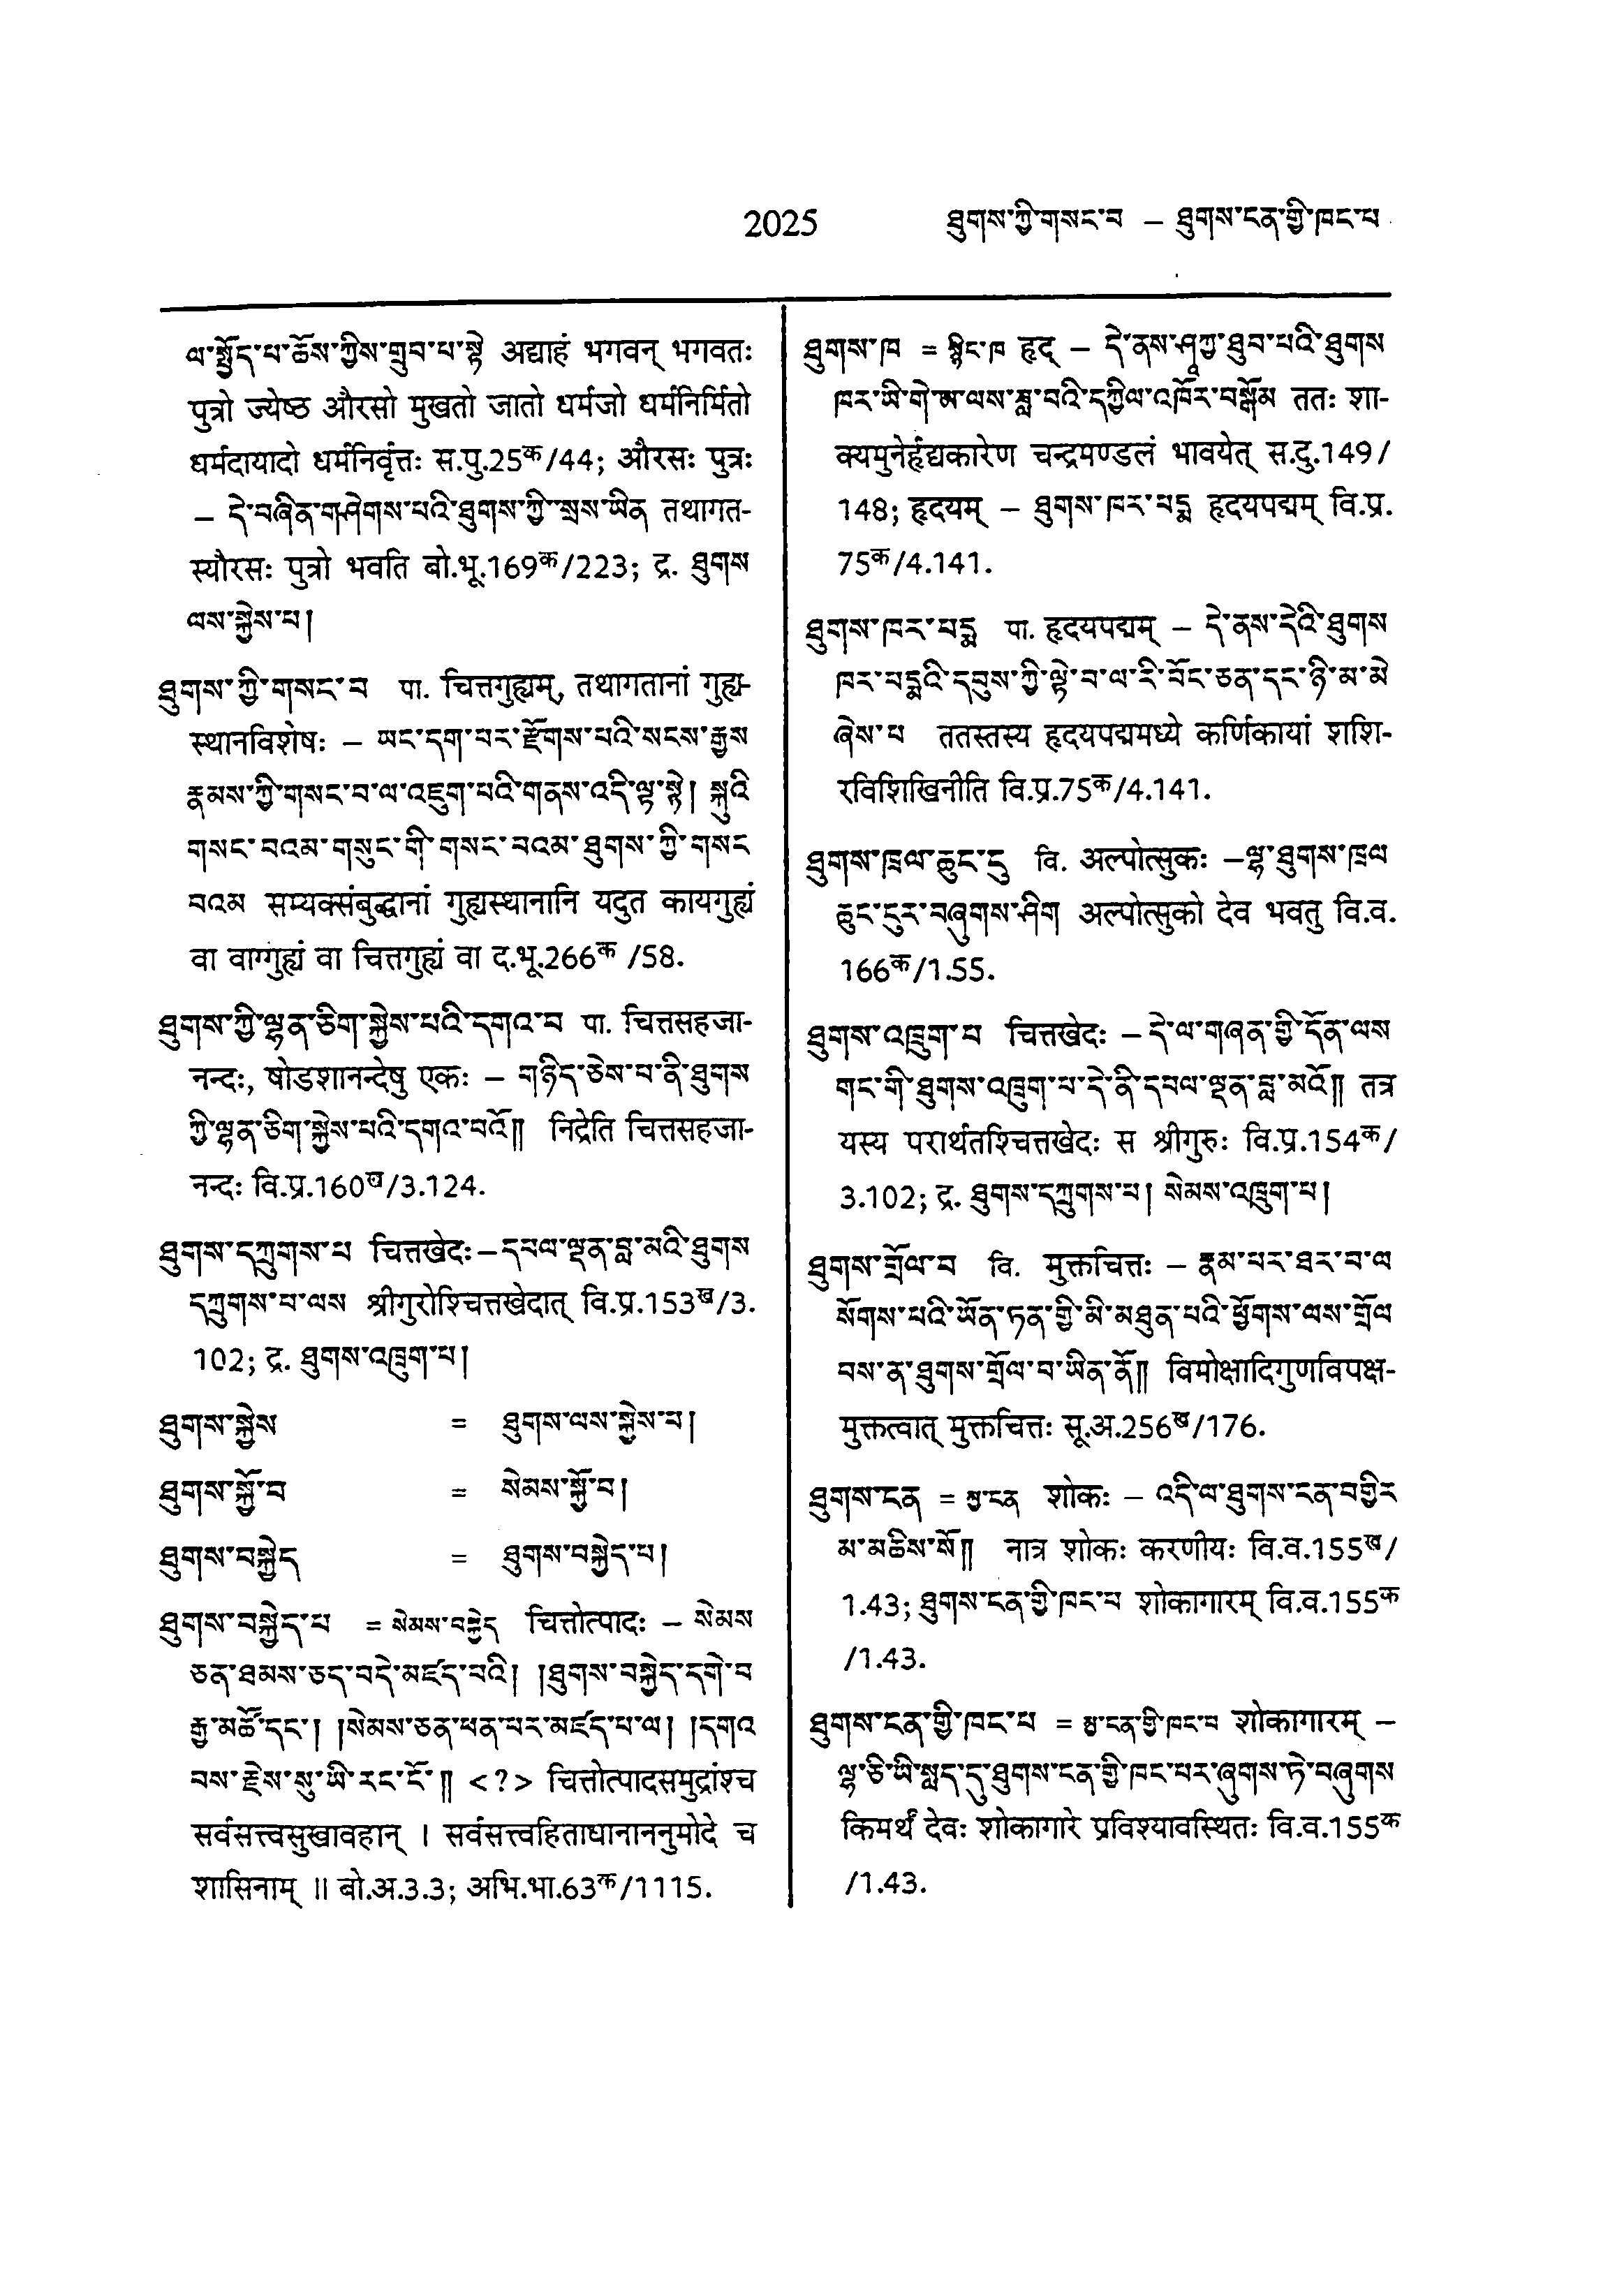 2025 ཐུགས་ཀྱི་གསང་བ – ཐུགས་ངན་གྱི་ཁང་པ
ལ་སྤྱོད་པ་ཆོས་ཀྱིས་གྲུབ་པ་སྟེ अद्याहं भगवन् भगवतः
पुत्रो ज्येष्ठ औरसो मुखतो जातो धर्मजो धर्मनिर्मितो
धर्मदायादो धर्मनिर्वृत्तः स.पु.25क/44; औरसः पुत्रः
– དེ་བཞིན་གཤེགས་པའི་ཐུགས་ཀྱི་སྲས་ཡིན तथागत-
स्यौरसः पुत्रो भवति बो.भू.169क/223; द्र. ཐུགས
ལས་སྐྱེས་པ།
ཐུགས་ཀྱི་གསང་བ पा. चित्तगुह्यम्, तथागतानां गुह्य-
स्थानविशेषः – ཡང་དག་པར་རྫོགས་པའི་སངས་རྒྱས
རྣམས་ཀྱི་གསང་བ་ལ་འཇུག་པའི་གནས་འདི་ལྟ་སྟེ། སྐུའི
གསང་བའམ་གསུང་གི་གསང་བའམ་ཐུགས་ཀྱི་གསང
བའམ सम्यक्संबुद्धानां गुह्यस्थानानि यदुत कायगुह्यं
वा वाग्गुह्यं वा चित्तगुह्यं वा द.भू.266क /58.
ཐུགས་ཀྱི་ལྷན་ཅིག་སྐྱེས་པའི་དགའ་བ पा. चित्तसहजा-
नन्दः, षोडशानन्देषु एकः – གཉིད་ཅེས་པ་ནི་ཐུགས
ཀྱི་ལྷན་ཅིག་སྐྱེས་པའི་དགའ་བའོ༎ निद्रेति चित्तसहजा-
नन्दः वि.प्र.160ख/3.124.
ཐུགས་དཀྲུགས་པ चित्तखेदः – དཔལ་ལྡན་བླ་མའི་ཐུགས
དཀྲུགས་པ་ལས श्रीगुरोश्चित्तखेदात् वि.प्र.153ख/3.
102; द्र. ཐུགས་འཁྲུག་པ།
ཐུགས་སྐྱེས = ཐུགས་ལས་སྐྱེས་པ།
ཐུགས་སྐྱོ་བ = སེམས་སྐྱོ་བ།
ཐུགས་བསྐྱེད = ཐུགས་བསྐྱེད་པ།
ཐུགས་བསྐྱེད་པ = སེམས་བསྐྱེད चित्तोत्पादः – སེམས
ཅན་ཐམས་ཅད་བདེ་མཛད་པའི། །ཐུགས་བསྐྱེད་དགེ་བ
རྒྱ་མཚོ་དང་། །སེམས་ཅན་ཕན་པར་མཛད་པ་ལ། །དགའ
བས་རྗེས་སུ་ཡི་རང་ངོ་༎ <?> चित्तोत्पादसमुद्रांश्च
सर्वसत्त्वसुखावहान् । सर्वसत्त्वहिताधानाननुमोदे च
शासिनाम् ॥ बो.अ.3.3; अभि.भा.63क/1115.
ཐུགས་ཁ = སྙིང་ཁ हृद् – དེ་ནས་ཤཱཀྱ་ཐུབ་པའི་ཐུགས
ཁར་ཡི་གེ་ཨ་ལས་ཟླ་བའི་དཀྱིལ་འཁོར་བསྒོམ ततः शा-
क्यमुनेर्हृद्यकारेण चन्द्रमण्डलं भावयेत् स.दु.149/
148; हृदयम् – ཐུགས་ཁར་པདྨ हृदयपद्मम् वि.प्र.
75क/4.141.
ཐུགས་ཁར་པདྨ पा. हृदयपद्मम् – དེ་ནས་དེའི་ཐུགས
ཁར་པདྨའི་དབུས་ཀྱི་ལྟེ་བ་ལ་རི་བོང་ཅན་དང་ཉི་མ་མེ
ཞེས་པ ततस्तस्य हृदयपद्ममध्ये कर्णिकायां शशि-
रविशिखिनीति वि.प्र.75क/4.141.
ཐུགས་ཁྲལ་ཆུང་ངུ वि. अल्पोत्सुकः –ལྷ་ཐུགས་ཁྲལ
ཆུང་ངུར་བཞུགས་ཤིག अल्पोत्सुको देव भवतु वि.व.
166क/1.55.
ཐུགས་འཁྲུག་པ चित्तखेदः – དེ་ལ་གཞན་གྱི་དོན་ལས
གང་གི་ཐུགས་འཁྲུག་པ་དེ་ནི་དཔལ་ལྡན་བླ་མའོ༎ तत्र
यस्य परार्थतश्चित्तखेदः स श्रीगुरुः वि.प्र.154क/
3.102; द्र. ཐུགས་དཀྲུགས་པ། སེམས་འཁྲུག་པ།
ཐུགས་གྲོལ་བ वि. मुक्तचित्तः – རྣམ་པར་ཐར་བ་ལ
སོགས་པའི་ཡོན་ཏན་གྱི་མི་མཐུན་པའི་ཕྱོགས་ལས་གྲོལ
བས་ན་ཐུགས་གྲོལ་བ་ཡིན་ནོ༎ विमोक्षादिगुणविपक्ष-
मुक्तत्वात् मुक्तचित्तः सू.अ.256ख/176.
ཐུགས་ངན = མྱ་ངན शोकः – འདི་ལ་ཐུགས་ངན་བགྱིར
མ་མཆིས་སོ༎ नात्र शोकः करणीयः वि.व.155ख/
1.43; ཐུགས་ངན་གྱི་ཁང་པ शोकागारम् वि.व.155क
/1.43.
ཐུགས་ངན་གྱི་ཁང་པ = མྱ་ངན་གྱི་ཁང་པ शोकागारम् –
ལྷ་ཅི་ཡི་སླད་དུ་ཐུགས་ངན་གྱི་ཁང་པར་ཞུགས་ཏེ་བཞུགས
किमर्थं देवः शोकागारे प्रविश्यावस्थितः वि.व.155क
/1.43.